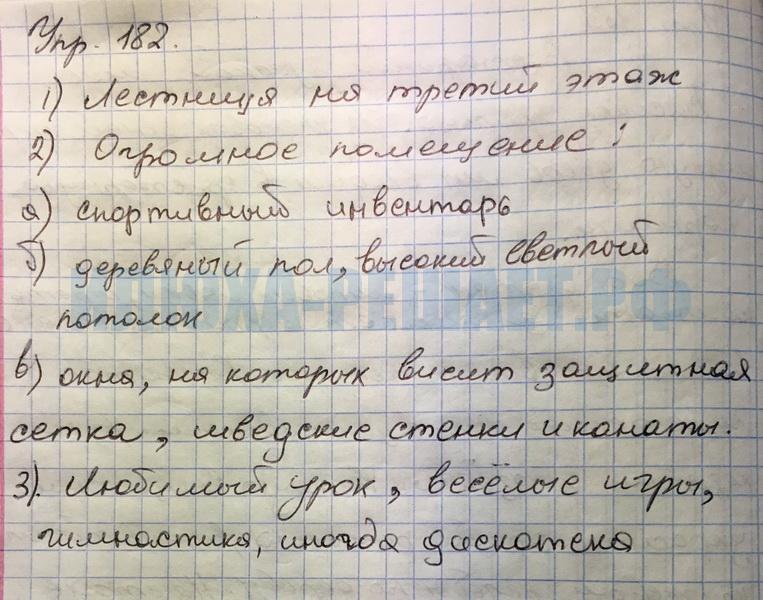 Упр. 182.
1) Лестница на третий этаж
2) Огромное помещение:
а) спортивный инвентарь
б) деревяный пол, высокий светлый
ИЛЮХА-РЕШАЕТ.РФ
потолок
в) окна, на которых висит защитная
сетка, шведские стенки и канаты.
3). Любимый урок, весёлые игры,
гимнастика, иногда дискотека